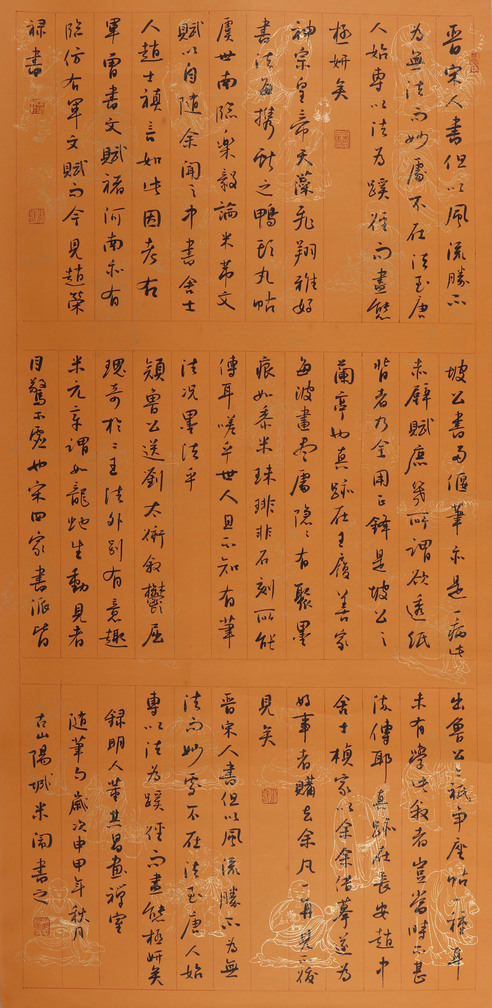 晋宋人書但以風流勝不
為無法而妙處不在法至唐
人始專以法為蹊徑而盡態
極妍矣
神宗皇帝天藻飛翔雅好
書法每携獻之鴨頭丸帖
虞世南臨樂毅論米芾文
賦以自隨余聞之中書舍士
人趙士禎言如此因考右
軍曾書文賦褚河南亦有
臨仿右軍文賦而今見趙榮
禄書
坡公書多偃筆亦是一病此
赤壁賦庶幾所謂欲透紙
背者乃全用正鋒是坡公之
蘭亭也真跡在王履善家
每波畫盡處隱隱有聚墨
痕如黍米珠琲非石刻所能
傳耳嗟乎世人且不知有筆
法况墨法乎
顔魯公送劉太冲叙鬱屈
瑰奇於二王法外别有意趣
米元章謂如龍蛇生動見者
目驚不虚也宋四家書派皆
出魯公亦祇争座帖一種耳
未有學此叙者豈當時不甚
流傳耶真跡在長安趙中
舍士楨家以余借摹遂為
好事者購去余凡一再見後
見矣
晋宋人書但以風流勝不為無
法而妙處不在法至唐人始
專以法為蹊徑而盡態極妍矣
録明人董其昌畫禪室
隨筆句歲次甲申年秋月
古山陽城米闹書之